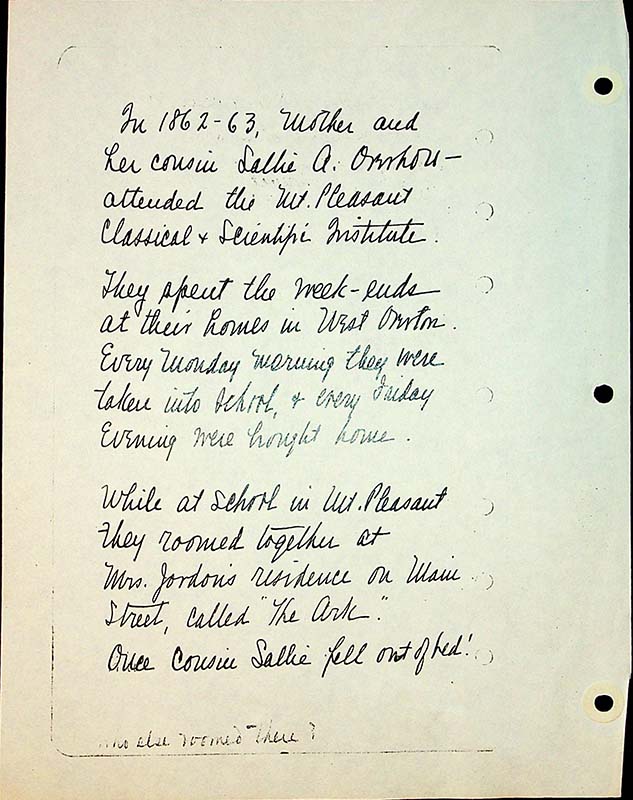 In 1862-63, Mother and
her cousin Sallie A. Overholt
attended the Mt. Pleasant
Classical & Scientific Institute.
They spent the week-ends
at their homes in West Overton.
Every Monday morning they were
taken into School, & every Friday
Evening were brought home.
While at School in Mt. Pleasant
they roomed together at
Mrs. Jordon's residence on Main
Street, called "The Ark".
Once Cousin Sallie fell out of bed!
who else roomed there?